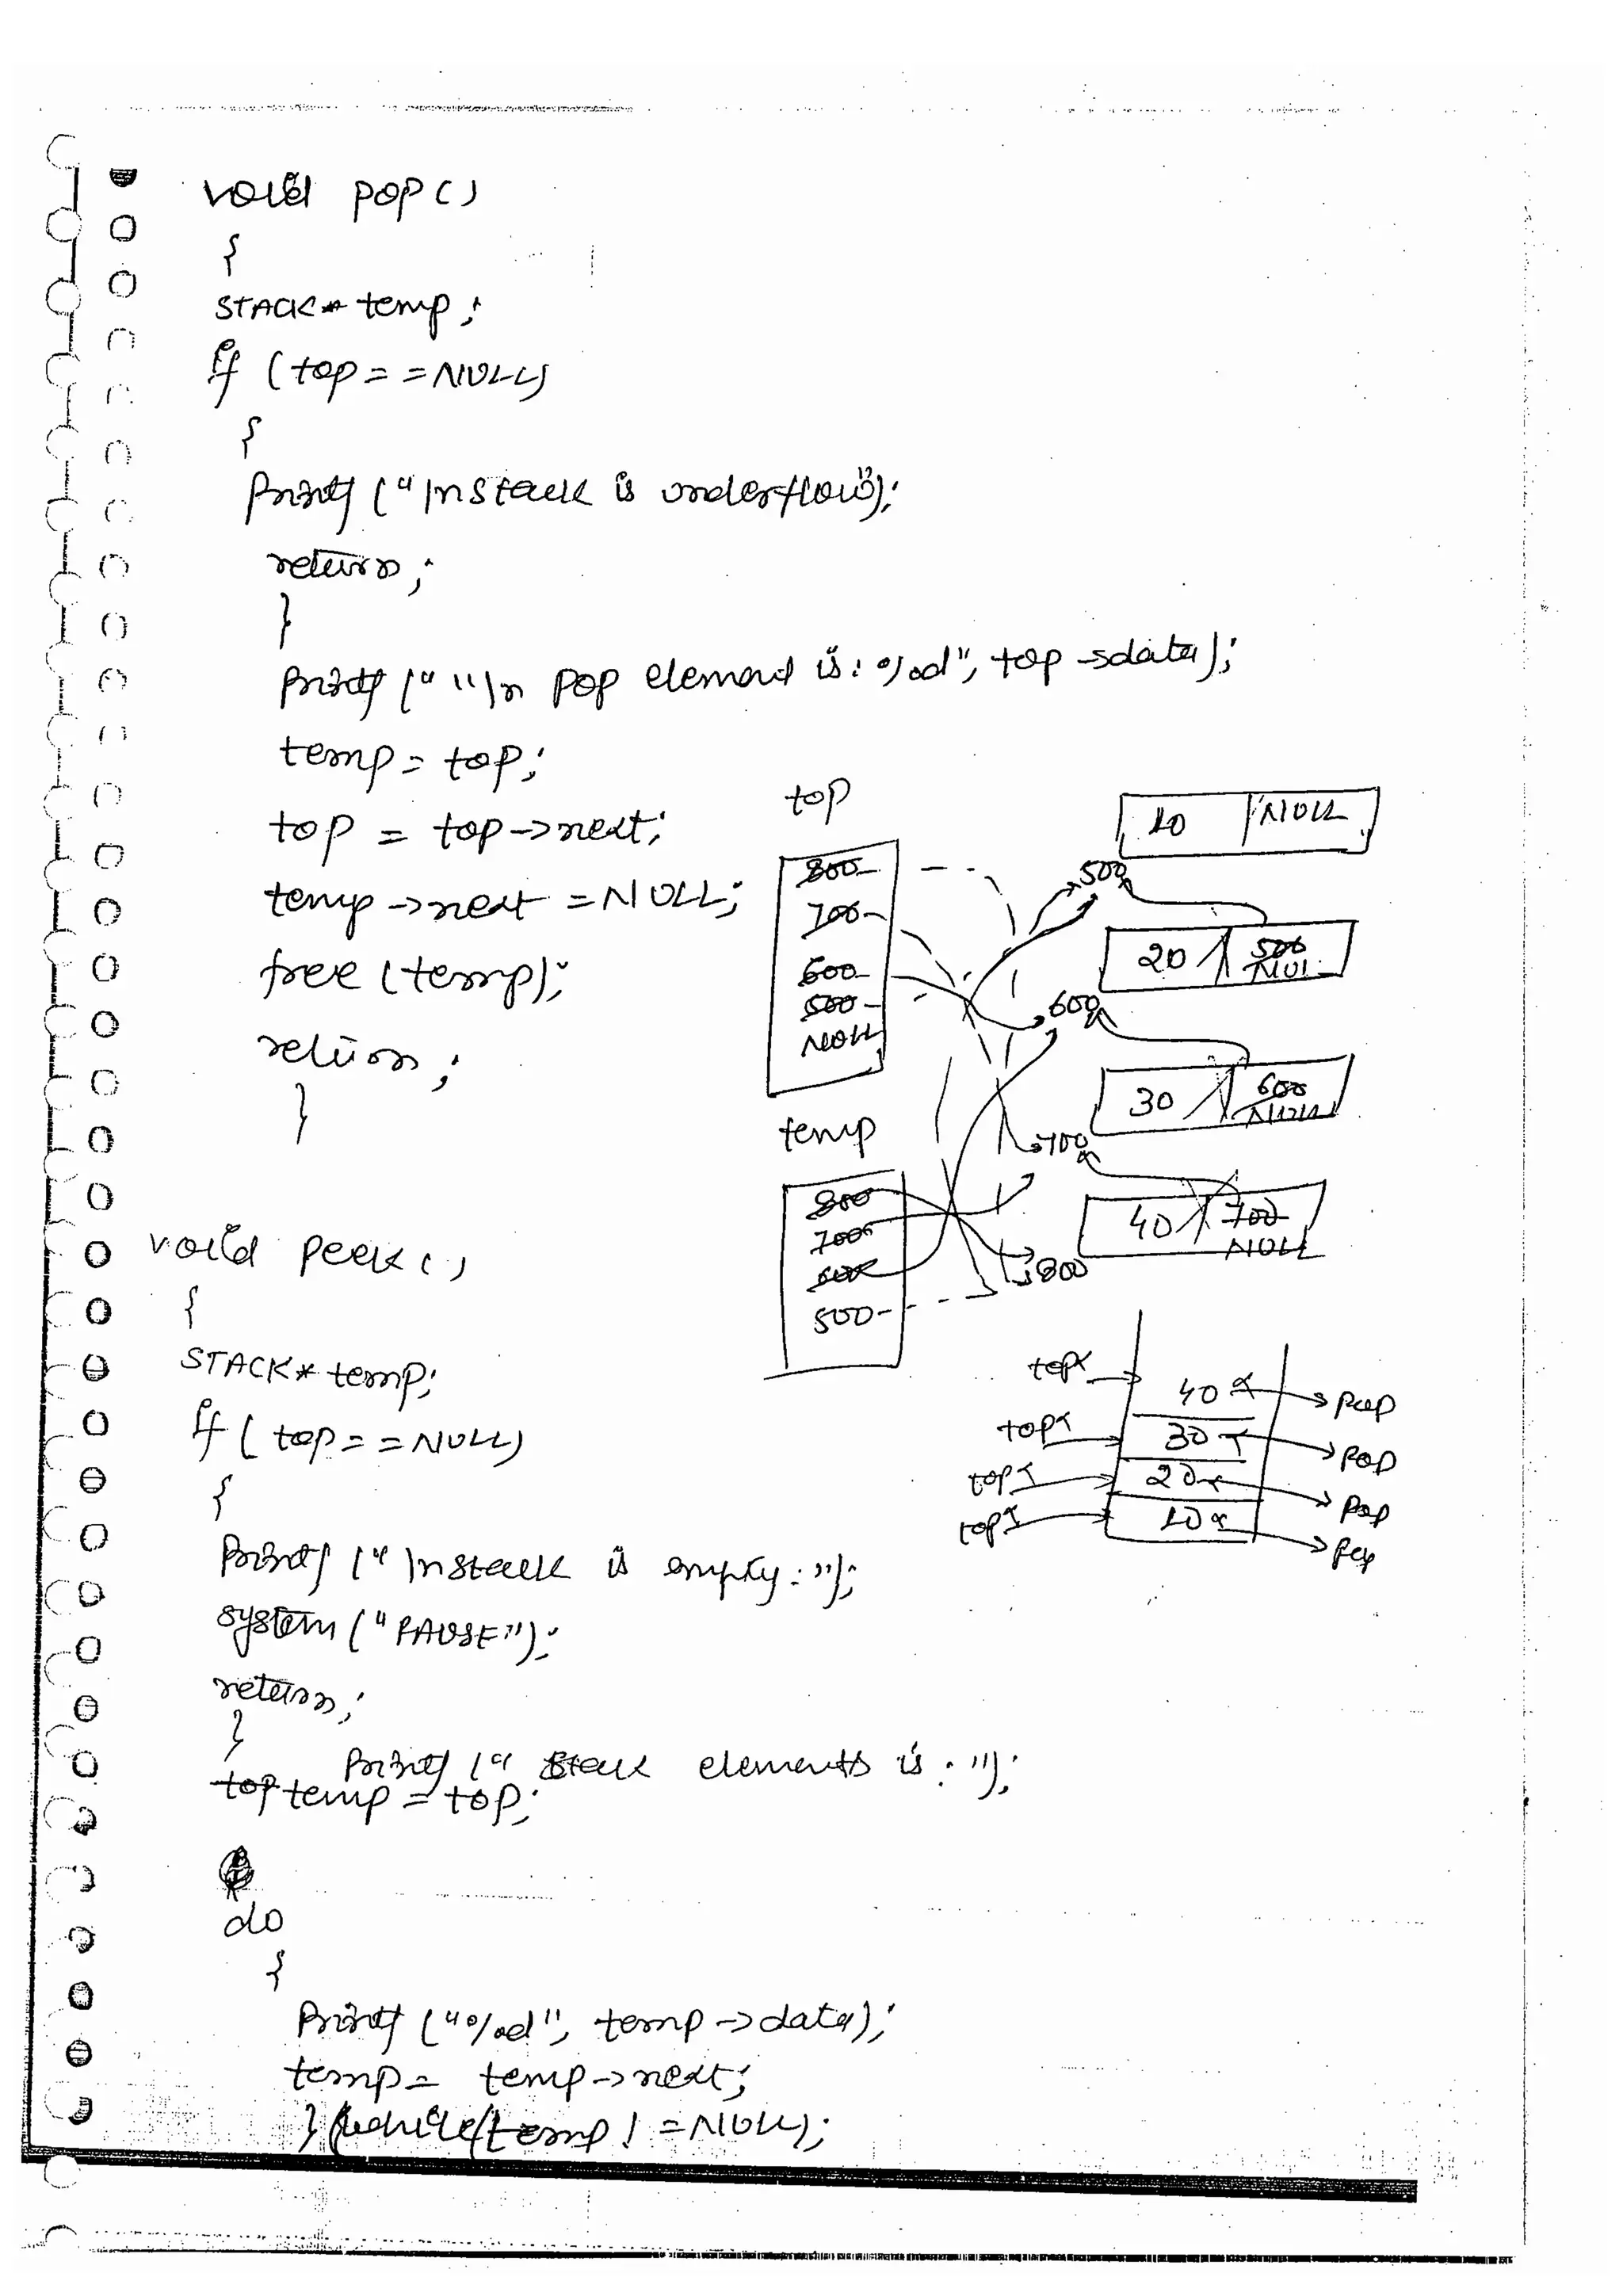 void pop()
{
STACK* temp;
if (top==NULL)
{
printf ("\nstack is underflow");
return;
}
printf (" "\n pop element is: %d", top→data);
temp = top;
top = top->next;
temp->next = NULL;
free (temp);
return;
}
top
800
700
600
500
NULL
temp
800
700
600
500
10 NULL
500
20 500
NUL
600
30 600
NULL
700
40 700
NULL
800
top 40 pop
top 30 pop
top 20 pop
top 10 pop
void peek()
{
STACK* temp;
if (top==NULL)
{
printf ("\nstack is empty:");
system ("PAUSE");
return;
}
printf (" stack elements is:");
top temp = top;
do
{
printf ("%d", temp->data);
temp = temp->next;
} while(temp!=NULL);